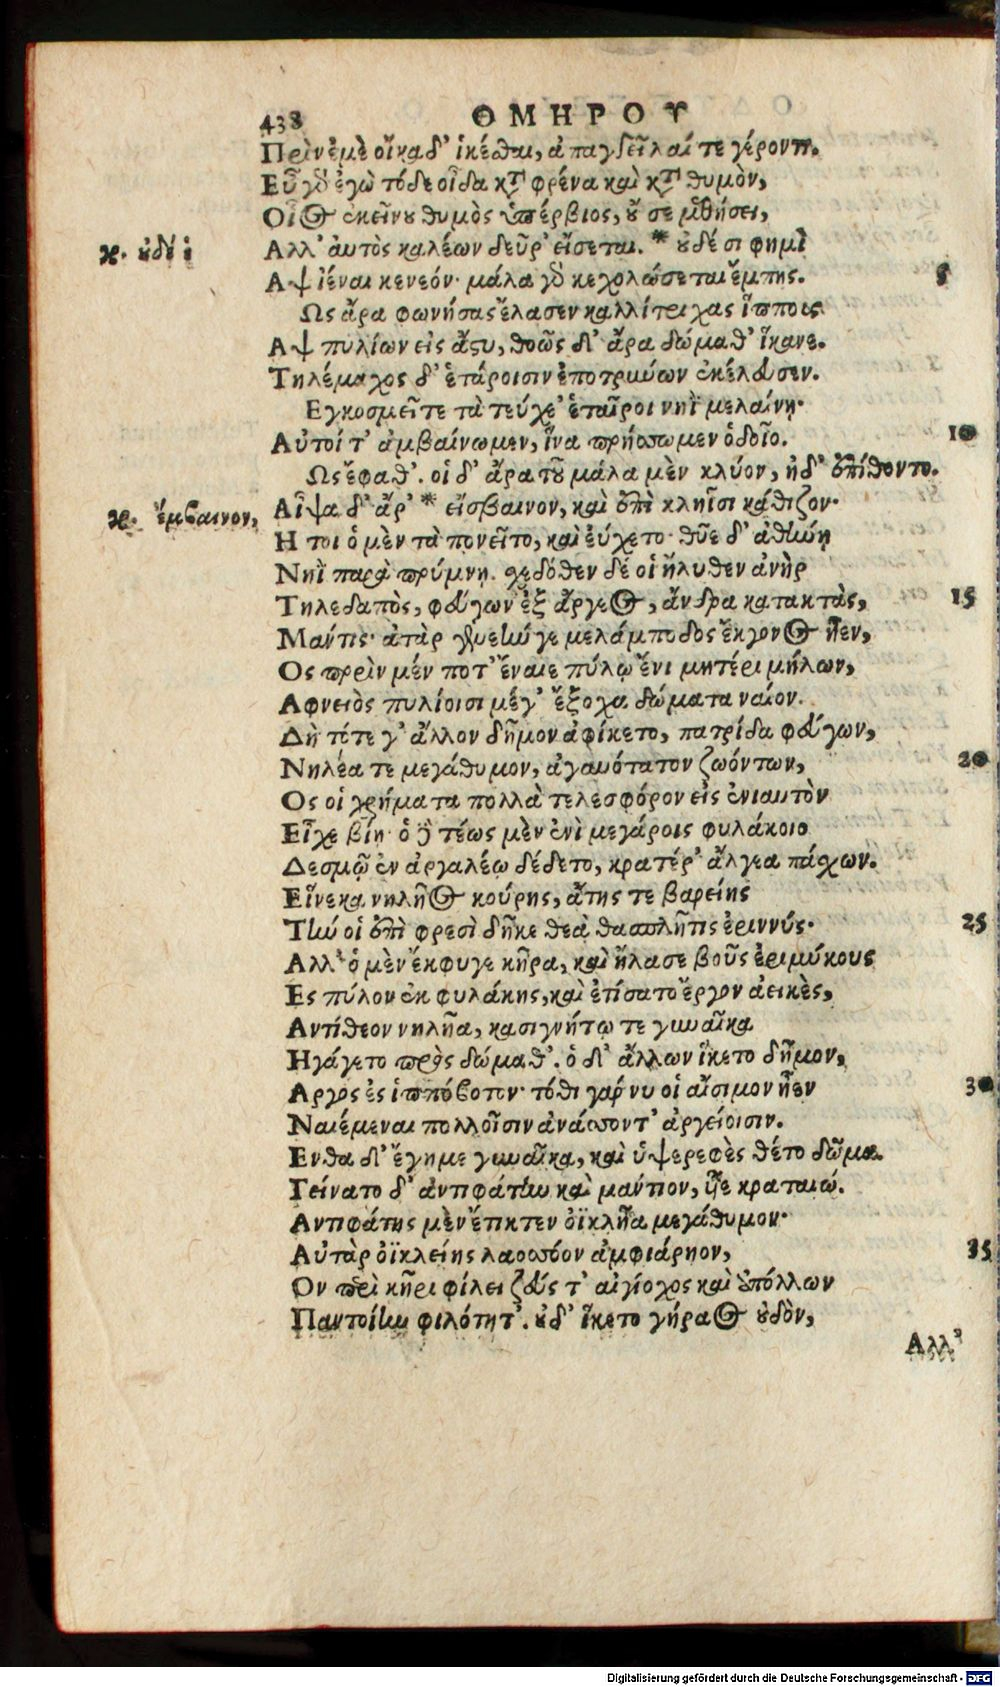 438 ΟΜΗΡΟΥ
Πρὶν ἐμὲ οἴκαδ' ἱκέσθαι, ἀπαγγεῖλαί τε γέροντι.
Εὖ γὰρ ἐγὼ τόδε οἶδα κατὰ φρένα καὶ κατὰ θυμὸν,
Οἷος ἐκείνου θυμὸς ὑπέρβιος, οὔ σε μεθήσει,
ϰ. οὐδέ ἑ
Αλλ' αὐτὸς καλέων δεῦρ' εἴσεται. * οὐδέ σι φημὶ
Αψ ἰέναι κενεόν· μάλα γὰρ κεχολώσεται ἔμπης. 5
Ως ἄρα φωνήσας ἔλασεν καλλίτριχας ἵππους
Αψ πυλίων εἰς ἄστυ, θοῶς δ' ἄρα δώμαθ' ἵκανε.
Τηλέμαχος δ' ἑτάροισιν ἐποτρύνων ἐκέλευσεν.
Εγκοσμεῖτε τὰ τεύχε' ἑταῖροι νηῒ μελαίνῃ·
Αὐτοί τ' ἀμβαίνωμεν, ἵνα πρήσσωμεν ὁδοῖο. 10
Ως ἔφαθ'. οἱ δ' ἄρα τοῦ μάλα μὲν κλύον, ἠδ' ἐπίθοντο.
ϰ. ἔμβαινον,
Αἶψα δ' ἄρ' * εἴσβαινον, καὶ ἐπὶ κληῖσι κάθιζον·
Η τοι ὁ μὲν τὰ πονεῖτο, καὶ εὔχετο· θῦε δ' ἀθήνῃ
Νηῒ παρὰ πρύμνῃ. σχεδόθεν δέ οἱ ἤλυθεν ἀνὴρ
Τηλεδαπὸς, φεύγων ἐξ ἄργεος, ἄνδρα κατακτὰς, 15
Μαντις· ἀτὰρ γενεήν γε μελάμποδος ἔκγονος ἦεν,
Ος πρὶν μέν ποτ' ἔναιε πύλῳ ἔνι μητέρι μήλων,
Αφνειὸς πυλίοισι μέγ' ἔξοχα δώματα ναίον.
Δὴ τότε γ' ἄλλον δῆμον ἀφίκετο, πατρίδα φεύγων,
Νηλέα τε μεγάθυμον, ἀγαυότατον ζωόντων, 20
Ος οἱ χρήματα πολλὰ τελεσφόρον εἰς ἐνιαυτὸν
Εἶχε βίῃ· ὁ δὲ τέως μὲν ἐνὶ μεγάροις φυλάκοιο
Δεσμῷ ἐν ἀργαλέῳ δέδετο, κρατέρ' ἄλγεα πάσχων.
Εἵνεκα νηλῆος κούρης, ἄτης τε βαρείης
Τήν οἱ ἐπὶ φρεσὶ δῆκε θεὰ θασπλῆτις ἐριννύς· 25
Αλλ' ὁ μὲν ἔκφυγε κῆρα, καὶ ἤλασε βοῦς ἐριμύκους
Ες πύλον ἐκ φυλάκης, καὶ ἐτίσατο ἔργον ἀεικὲς,
Αντίθεον νηλῆα, κασιγνήτῳ τε γυναῖκα
Ηγάγετο πρὸς δώμαθ'. ὁ δ' ἄλλων ἵκετο δῆμον,
Αργος ἐς ἱππόβοτον· τόθι γάρ νυ οἱ αἴσιμον ἦεν 30
Ναιέμεναι πολλοῖσιν ἀνάσσοντ' ἀργείοισιν.
Ενθα δ' ἔγημε γυναῖκα, καὶ ὑψερεφὲς θέτο δῶμα.
Γείνατο δ' ἀντιφάτην καὶ μαντιον, υἷε κραταιώ.
Αντιφάτης μὲν ἔτικτεν ὀϊκλῆα μεγάθυμον·
Αὐτὰρ ὀϊκλείης λαοσσόον ἀμφιάρηον, 35
Ον περὶ κῆρι φίλει ζεύς τ' αἰγίοχος καὶ ἀπόλλων
Παντοίην φιλότητ'. οὐδ' ἵκετο γήραος οὐδὸν,
Αλλ'
Digitalisierung gefördert durch die Deutsche Forschungsgemeinschaft - DFG